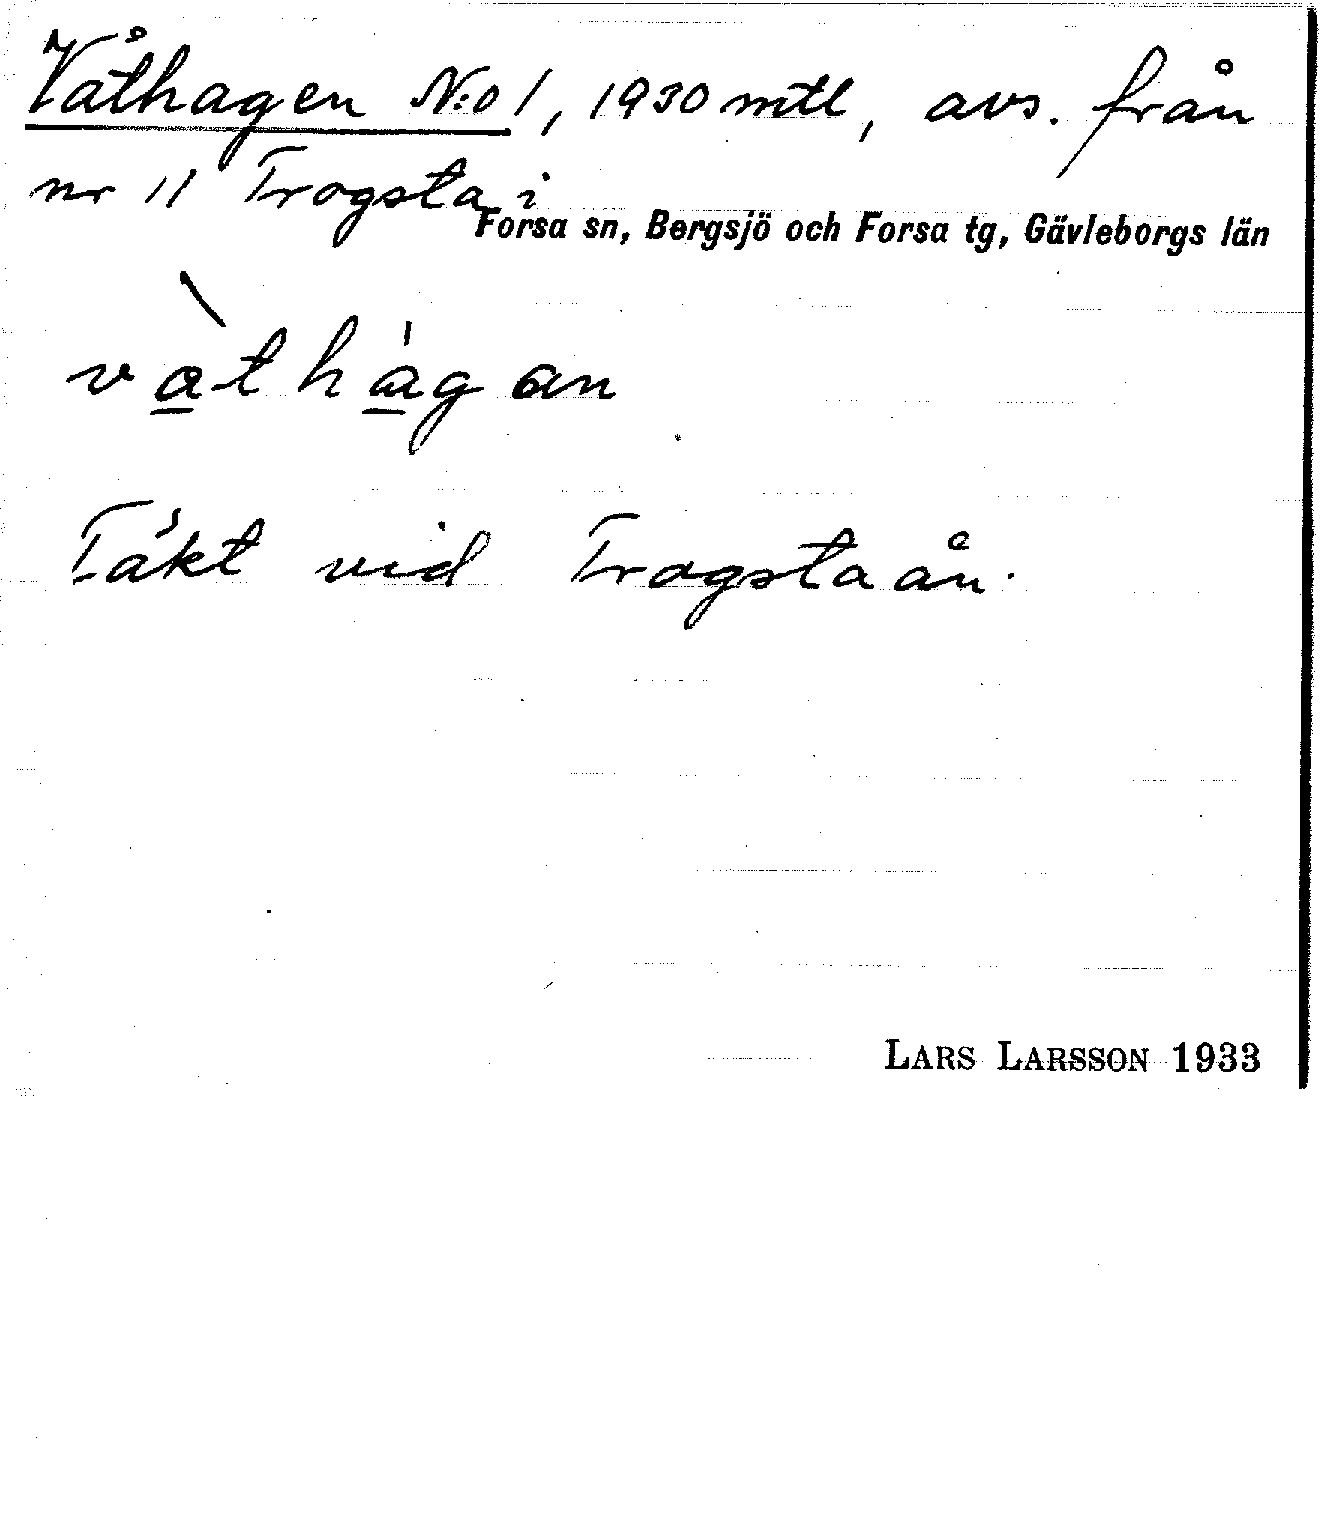 Våthagen N:o 1, 1930 mtl, avs. från
nr 11 Trogsta i
Forsa sn, Bergsjö och Forsa tg, Gävleborgs län
vàthágan
Täkt vid Trogstaån.
LARS LARSSON 1933